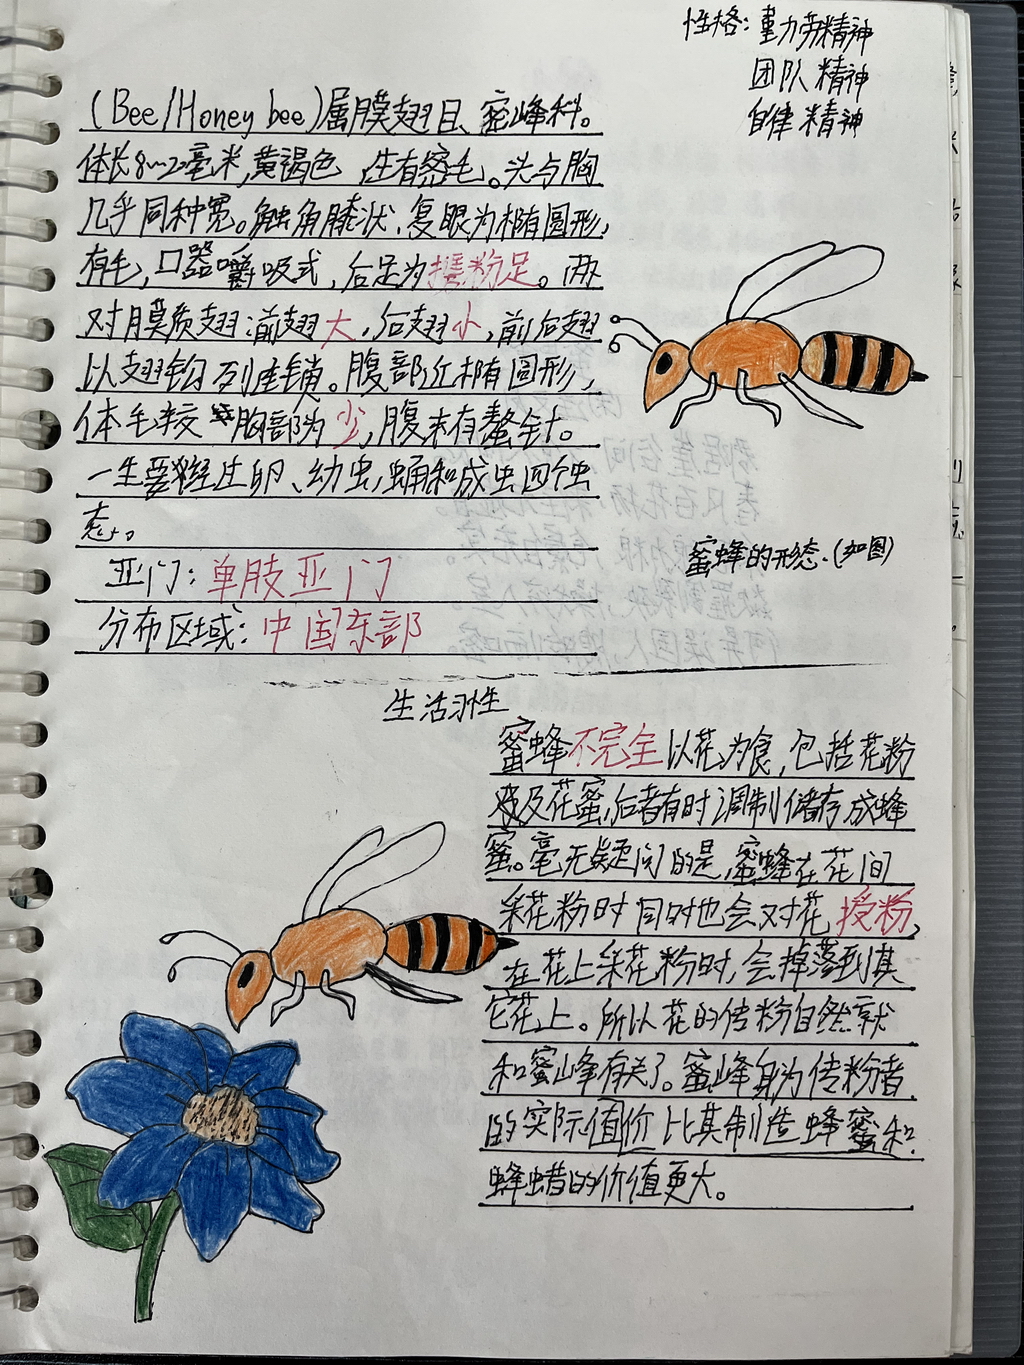 性格：勤劳精神
团队精神
自律精神
（Bee/Honey bee）属膜翅目、蜜蜂科。
体长8~20毫米，黄褐色，生有密毛。头与胸
几乎同种宽。触角膝状，复眼为椭圆形，
有毛，口器嚼吸式，后足为携粉足。两
对膜质翅：前翅大，后翅小，前后翅
以翅钩列连锁。腹部近椭圆形，
体毛较胸部为少，腹末有螯针。
一生要经过卵、幼虫，蛹和成虫四个虫
态。
亚门：单肢亚门
分布区域：中国东部
蜜蜂的形态.（如图）
生活习性
蜜蜂不完全以花为食，包括花粉
及花蜜，后者有时调制储存成蜂
蜜。毫无疑问的是，蜜蜂在花间
采花粉时同时也会对花授粉，
在花上采花粉时，会掉落到其
它花上。所以花的传粉自然就
和蜜蜂有关了。蜜蜂身为传粉者
的实际值价比其制造蜂蜜和
蜂蜡的价值更大。